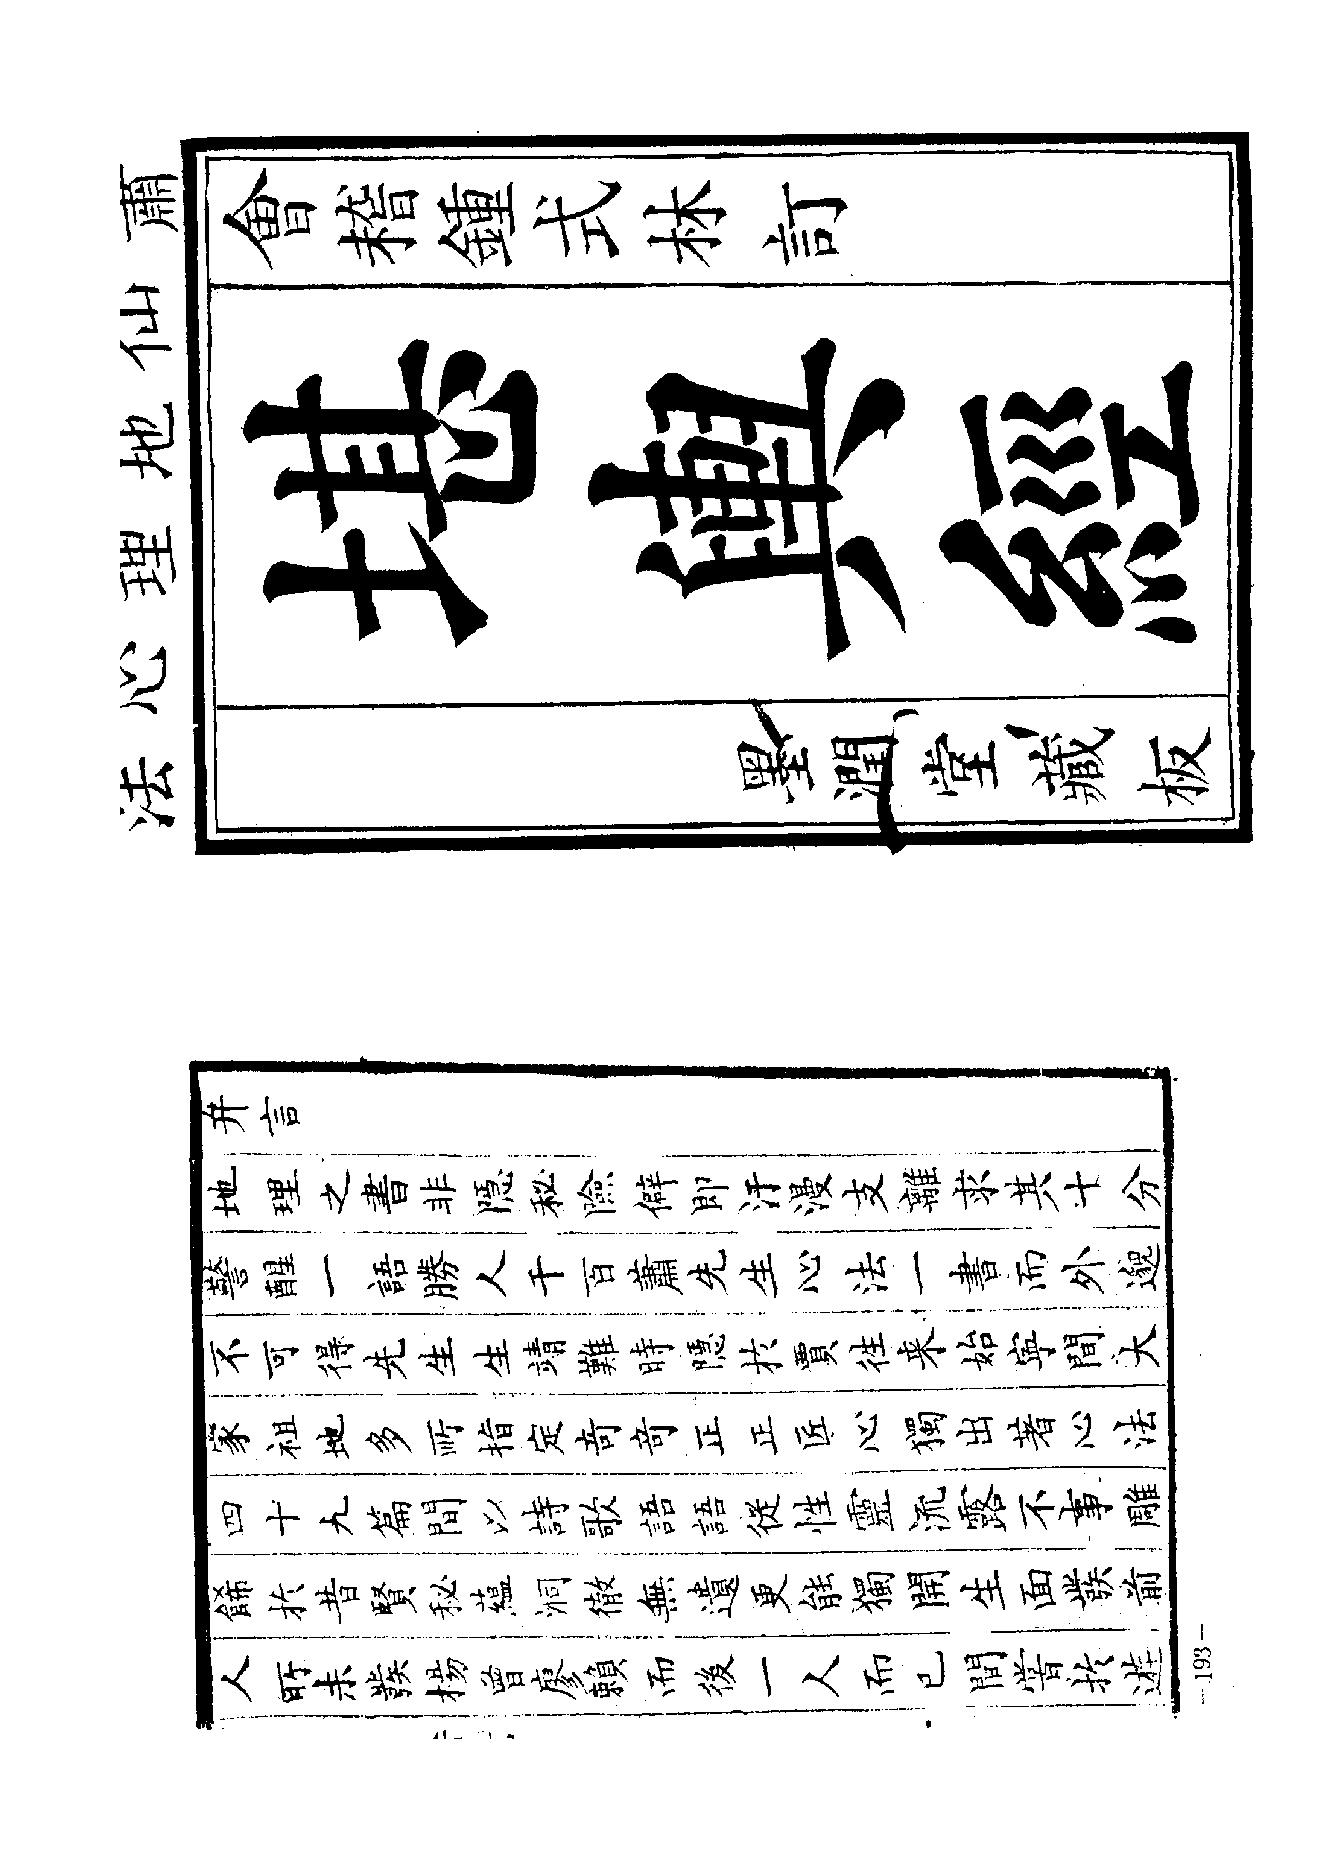 蕭仙地理心法
會稽鍾式林訂
堪輿經
墨潤堂藏板
弁言
地理之書非隱秘險僻即汙漫支離求其十分
警醒一語勝人千百蕭先生心法一書而外邈
不可得先生生靖難時隱於賈往来始寧間大
家祖地多所指定奇奇正正匠心獨出著心法
四十九篇間以詩歌語語從性靈流露不事雕
餙於昔賢秘蘊洞徹無遺更能獨開生面發前
人所未發楊曾廖賴而後一人而已間嘗於遊
—193—